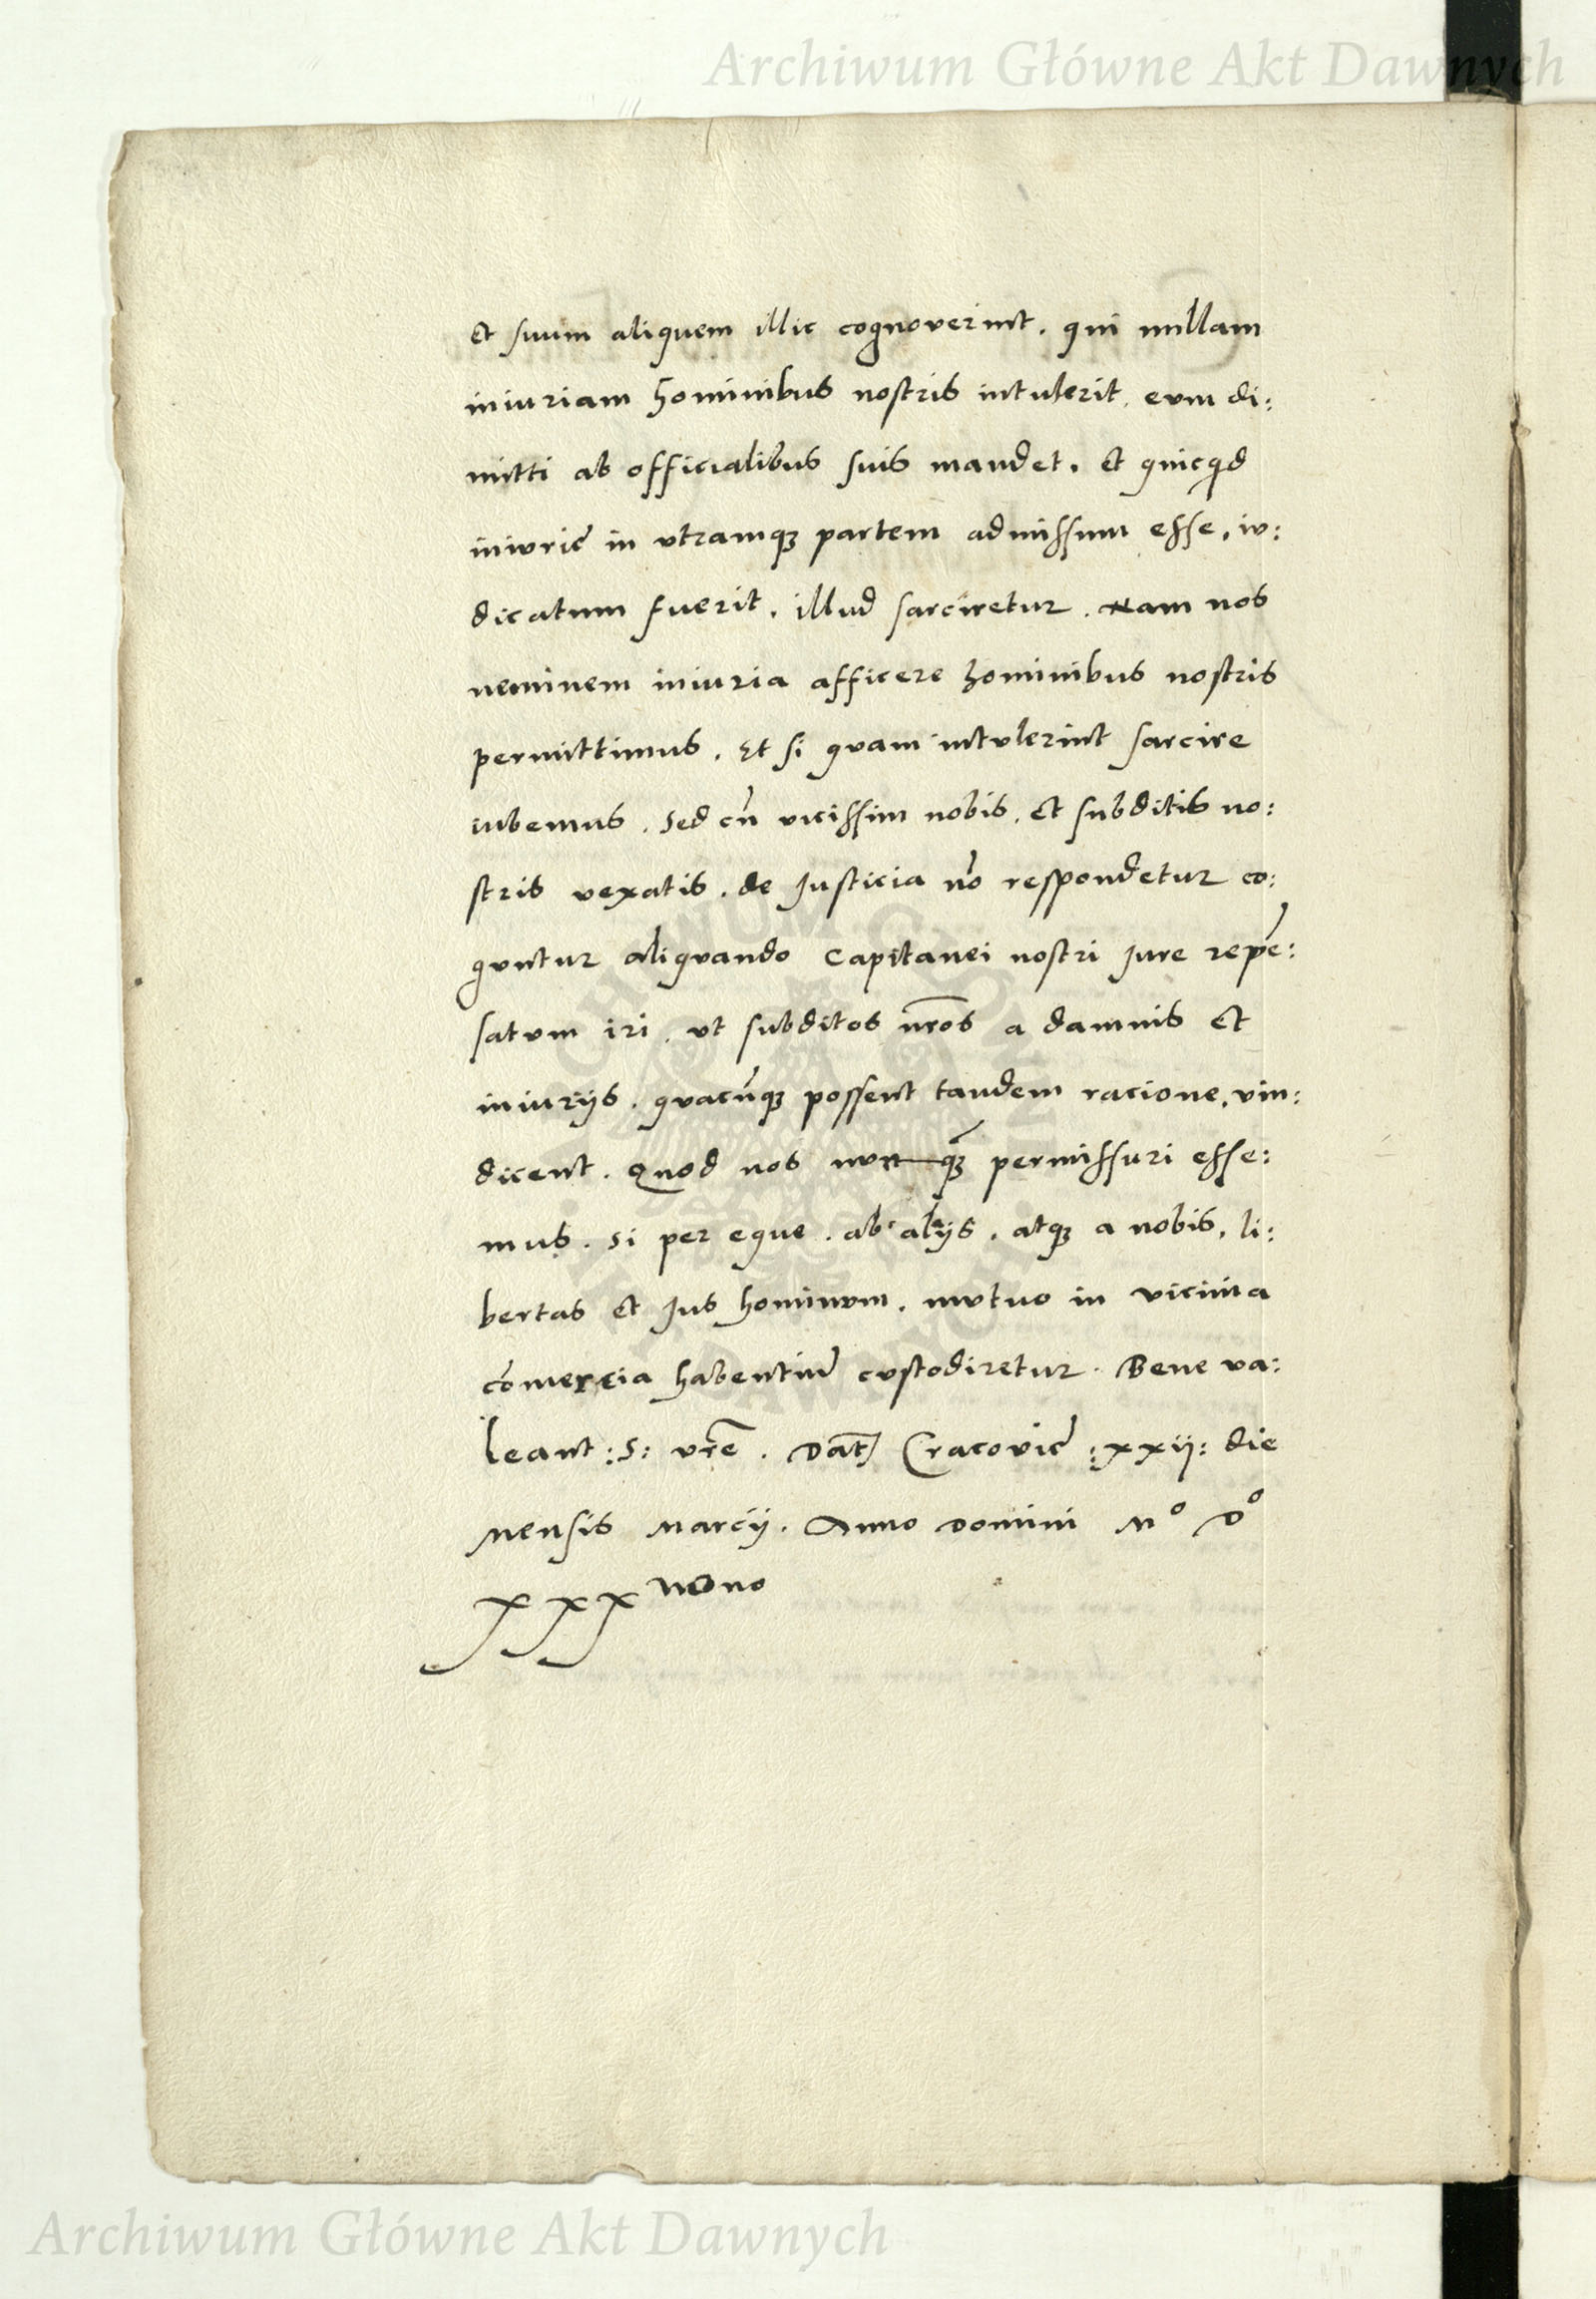 Archiwum Główne Akt Dawnych
Et suum aliquem illic cognoverint. qui nullam
iniuriam hominibus nostris intulerit. eum di:
mitti ab officialibus suis mandet. Et quicqd
iniurie in utramqʒ partem admissum esse, iu:
dicatum fuerit. illud sarciretur. Nam nos
neminem iniuria afficere hominibus nostris
permittimus. Et si quam intulerint sarcire
iubemus. Sed cū vicissim nobis. Et subditis no:
stris vexatis. de Justicia nō respondetur co:
guntur aliquando Capitanei nostri Jure repē:
satum iri. ut subditos nr̄os a damnis Et
iniurijs. quacūqʒ possent tandem racione. vin:
dicent. Quod nos nunqʒ̄ permissuri esse:
mus. Si per eque. ab alijs. atqʒ a nobis. li:
bertas Et Jus hominum. mutuo in vicinia
cōmercia habentiū custodiretur. Bene va:
leant: S: vr̄e. Dat̄ Cracovie :xxij: die
Mensis Marcij. Anno Domini Mº Dº
XXX nono
Archiwum Główne Akt Dawnych